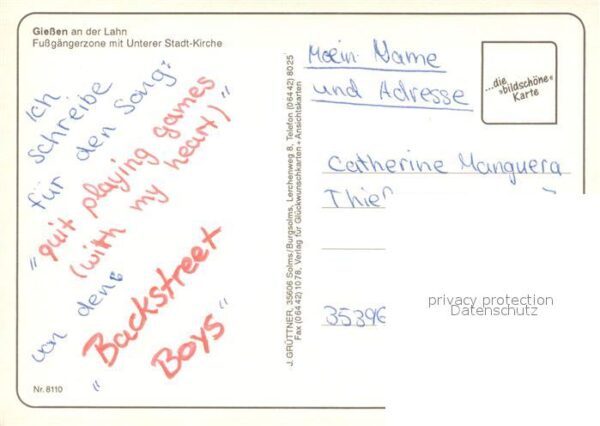 Gießen an der Lahn
Fußgängerzone mit Unterer Stadt-Kirche
Ich
schreibe
für den Song:
"quit playing games
(with my heart)"
von den
"Backstreet
Boys"
Nr. 8110
J. GRÜTTNER, 35606 Solms/Burgsolms, Lerchenweg 8, Telefon (0 64 42) 80 25
Fax (0 64 42) 1078, Verlag für Glückwunschkarten + Ansichtskarten
Mein Name
und Adresse
...die
»bildschöne«
Karte
Catherine Manguera
Thie
35396
privacy protection
Datenschutz